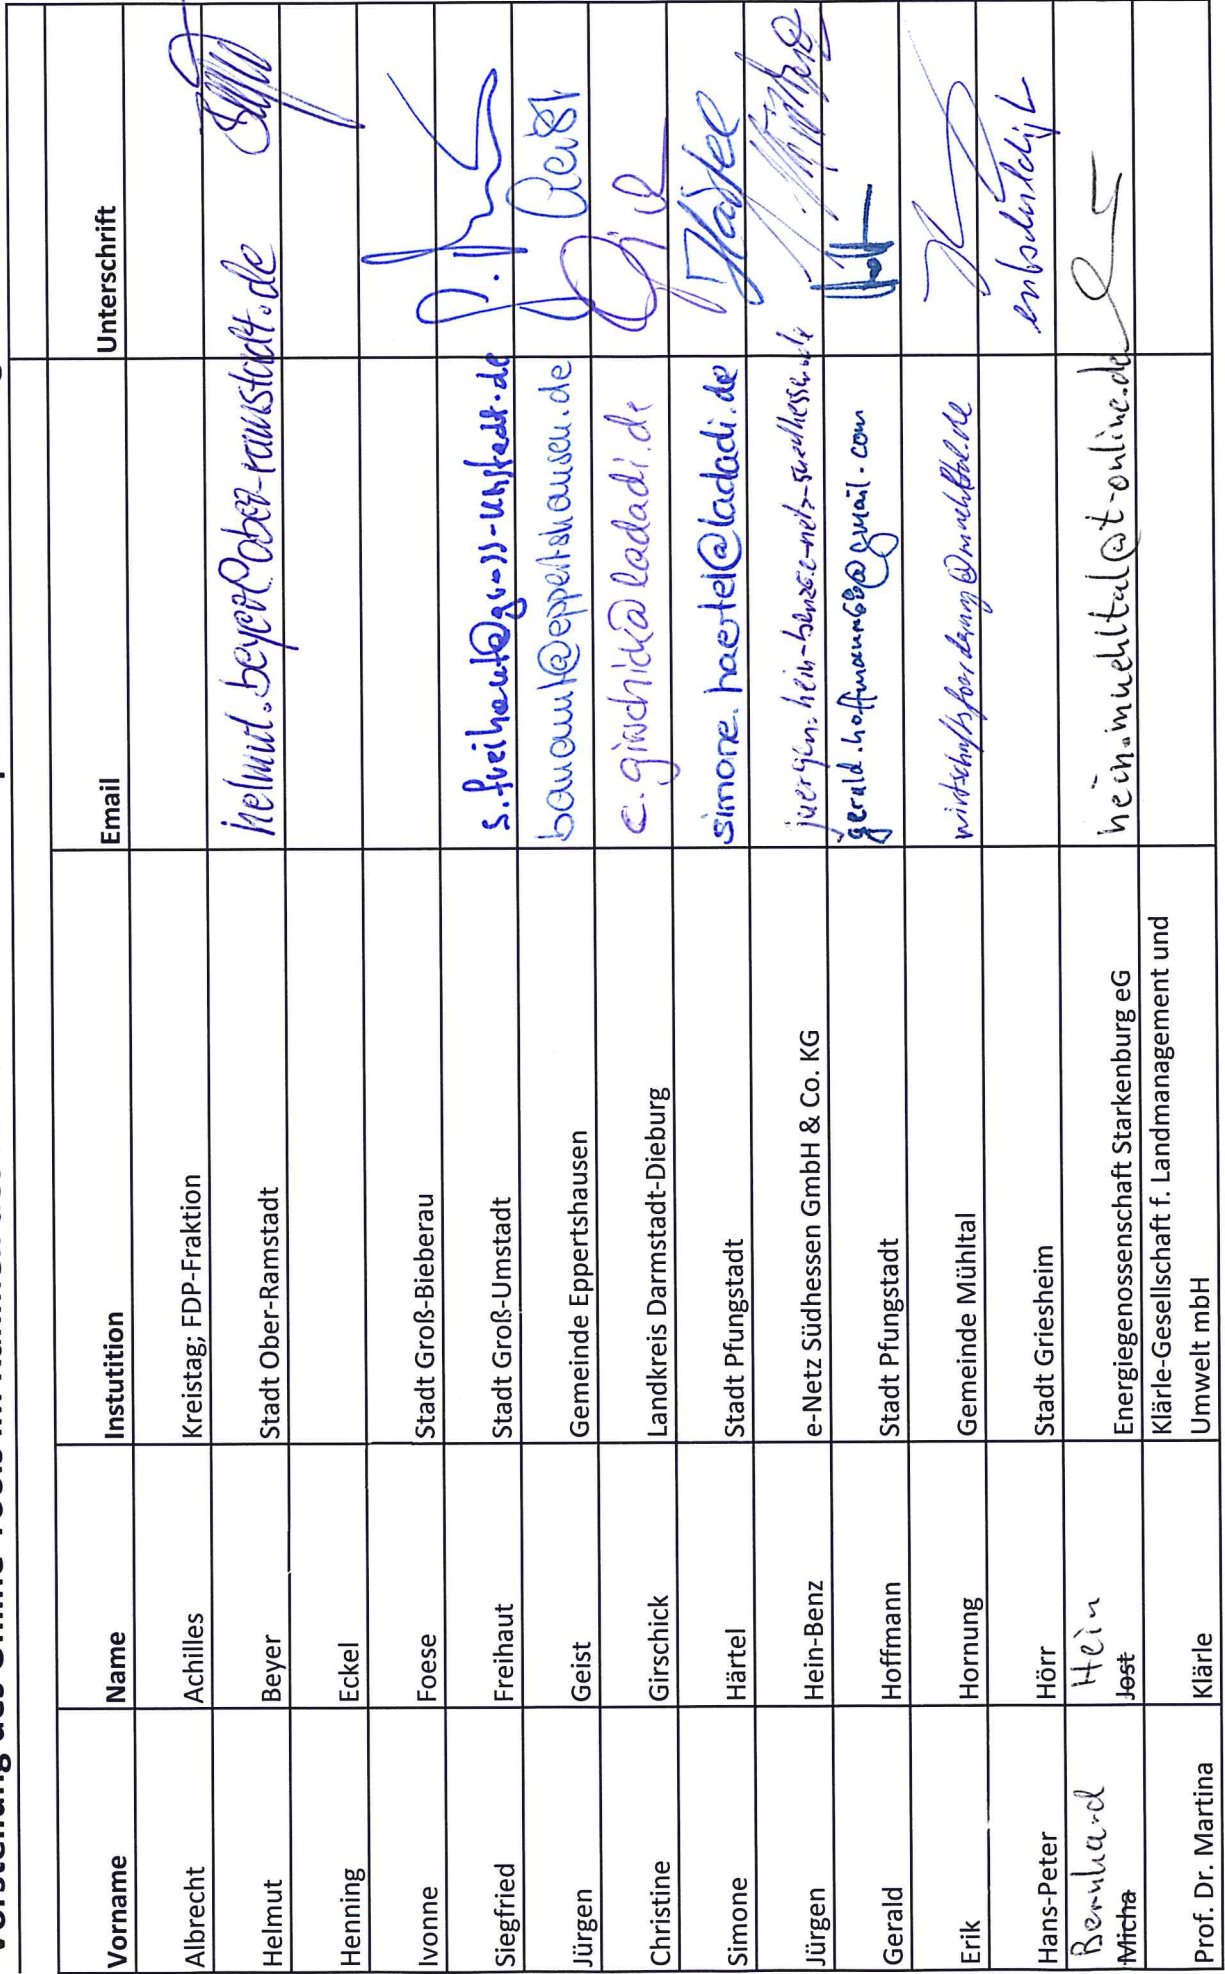 Vorname Name Instutition Email Unterschrift
Albrecht Achilles Kreistag; FDP-Fraktion
Helmut Beyer Stadt Ober-Ramstadt helmut.beyer@ober-ramstadt.de
Henning Eckel
Ivonne Foese Stadt Groß-Bieberau
Siegfried Freihaut Stadt Groß-Umstadt s.freihaut@gross-umstadt.de
Jürgen Geist Gemeinde Eppertshausen bauamt@eppertshausen.de Geist
Christine Girschick Landkreis Darmstadt-Dieburg c.girschick@ladadi.de
Simone Härtel Stadt Pfungstadt simone.haertel@ladadi.de Härtel
Jürgen Hein-Benz e-Netz Südhessen GmbH & Co. KG juergen.hein-benz@e-netz-suedhessen.de
Gerald Hoffmann Stadt Pfungstadt gerald.hoffmann69@gmail.com
Erik Hornung Gemeinde Mühltal wirtschaftsfoerderung@muehltal.de
Hans-Peter Hörr Stadt Griesheim entschuldigt
Bernhard Hein
Micha Jost Energiegenossenschaft Starkenburg eG hein.muehltal@t-online.de
Klärle-Gesellschaft f. Landmanagement und
Prof. Dr. Martina Klärle Umwelt mbH